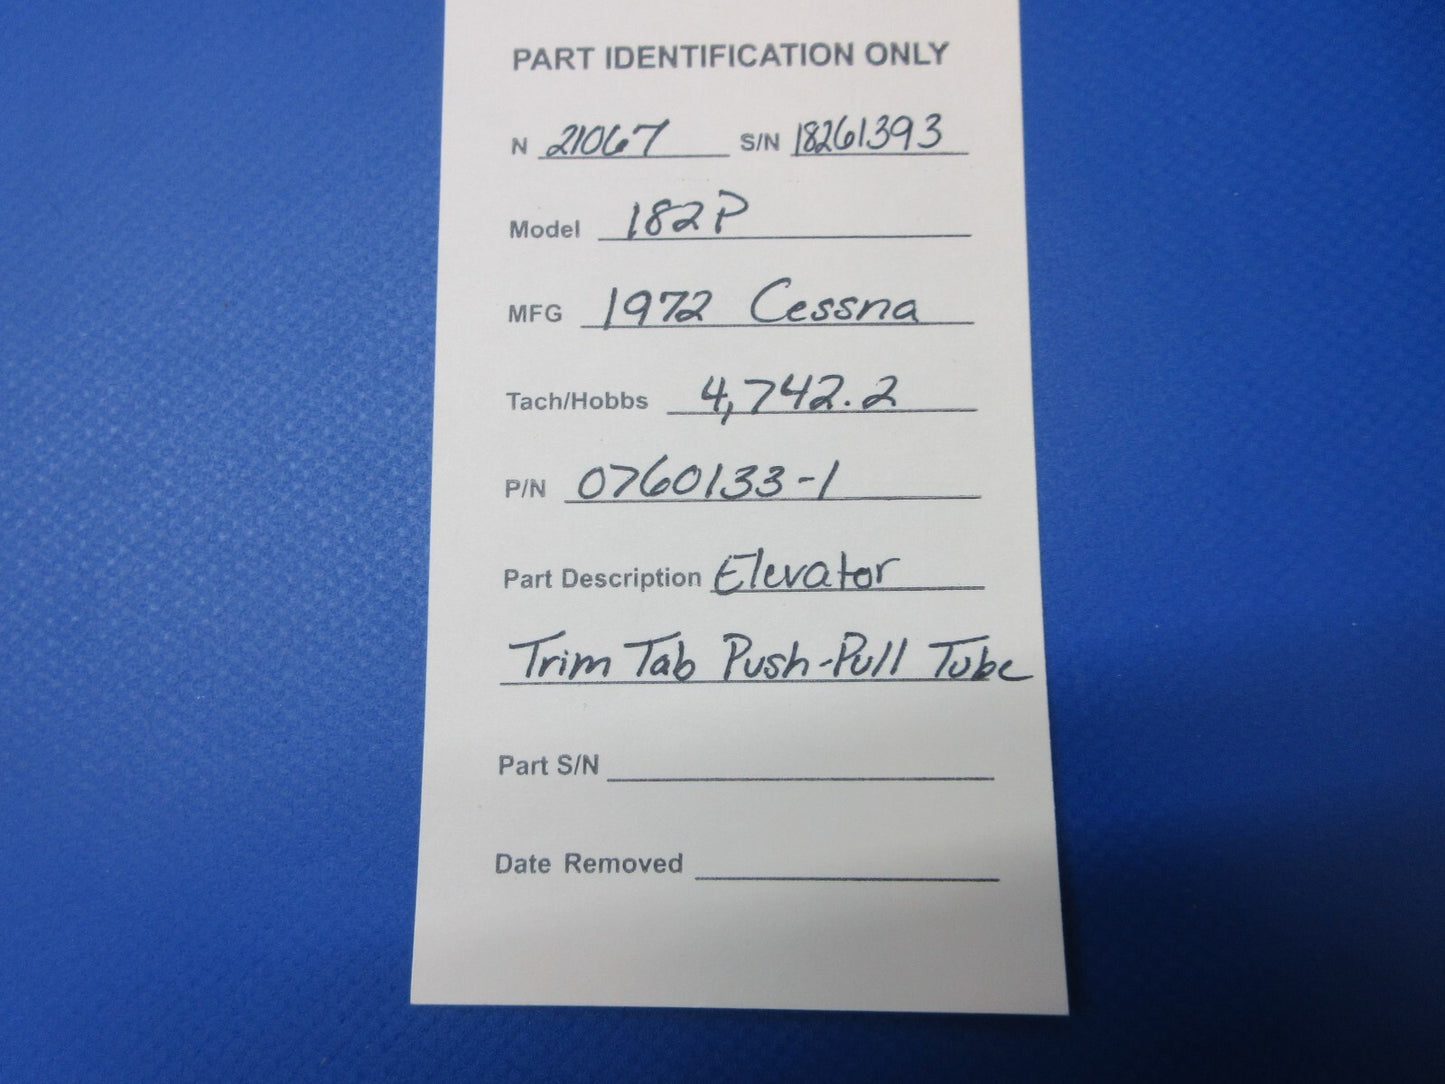 PART IDENTIFICATION ONLY
N 21067 S/N 18261393
Model 182P
MFG 1972 Cessna
Tach/Hobbs 4,742.2
P/N 0760133-1
Part Description Elevator
Trim Tab Push-Pull Tube
Part S/N
Date Removed